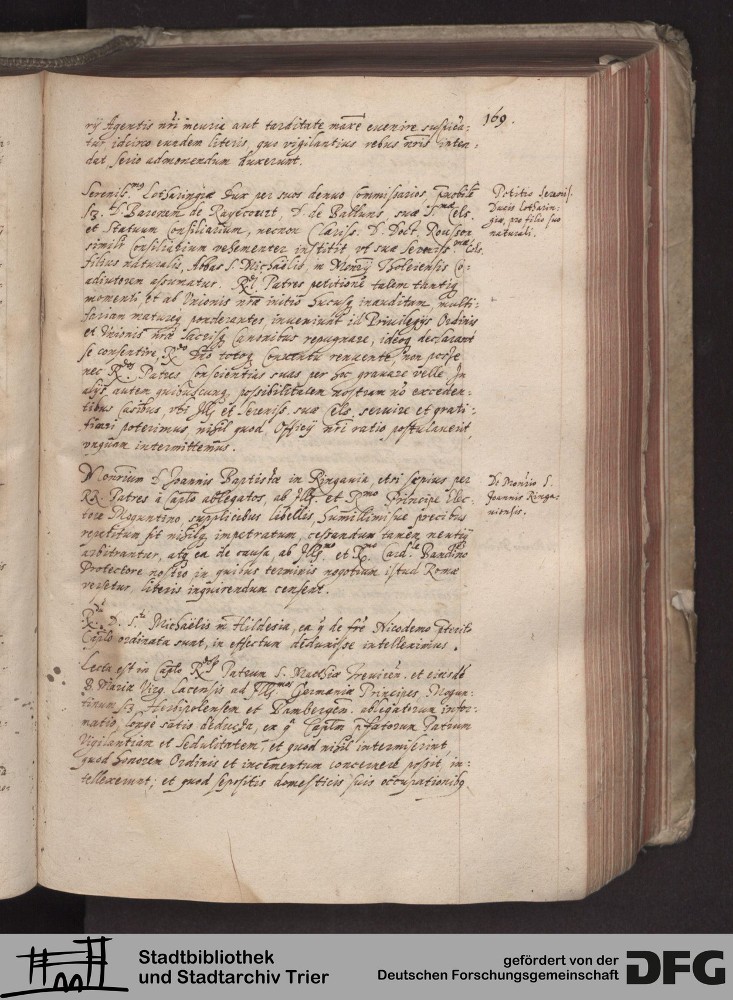 169.
rij Agentis nri incuria aut tarditate maxe euenire suspica:
tur, idcirco eundem literis, quo vigilantius rebus nris inten:
dat serio admonendum duxerunt.
Sereniss.mus Lotharingiæ Dux per suos denuo Commissarios,
D. Baronem de Raÿecourt, D. de suæ S.mæ Cels.
et Statuum Consiliarium, necnon Clariss. D. Doct. Rousson
simili Consiliarium vehementer institit vt suæ Sereniss.mæ Cels.
filius naturalis, Abbas S. Michaëlis, in Monrij Tholeiensis Co-
adiutorem assumatur. R.di Patres petitionē talem tantiq
momenti, et ab Vnionis nræ initio hucusq inauditam multi:
fariam matureq ponderantes, inueniunt illā Priuilegijs Ordinis
et Vnionis nræ sacrisq Canonibus repugnare, ideoq declarant
se consentire, R.do Dno totoq Conuentu renuente, non posse
nec R.dos Patres conscientias suas per hoc grauare velle. In
alijs autem quibuscunq possibilitatem nostram nō exceden-
tibus casibus, vbi Illæ et Sereniss. suæ Cels. seruire et grati:
ficari poterimus nihil quod Officij nri ratio postulauerit,
vnquam intermittemus.
Petitio Sereniss.
Ducis Lotharin:
giæ, pro filio suo
naturali.
Monrium S. Joannis Baptistæ in Ringauia, etsi sæpius per
RR. Patres à Caplo ablegatos, ab Illmo et R.mo Principe Elec-
tore Moguntino, supplicibus libellis, humillimisque precibus
repetitum sit nihilq impetratum, cessandum tamen neutiq
arbitrantur, atq ea de causa, ab Illmo et R.mo Card.le Bandino
Protectore nostro in quibus terminis negotium istud Romæ
versetur literis inquirendum censent.
De Monrio S.
Joannis Ringa-
uiensis.
R.dū D. S.ti Michaëlis in Hildesia, ea q de fre Nicodemo pterito
Caplo ordinata sunt, in effectum deduxisse intelleximus.
Lecta est in Caplo R.dorum Patrum S. Matthiæ Treuiren. et eiusdē
B. Mariæ Virg. Lacensis ad Illmos Germaniæ Principes Mogun-
tinum Herbipolensem et Bambergēn. ablegatorum infor-
matio, longe satis deducta, ex q Caplm pfatorum Patrum
Vigilantiam et Sedulitatem, et quod nihil intermiserint,
quod honorem Ordinis et incrementum concernere possit, in:
tellexerunt; et quod sepositis domesticis suis occupationibq
Stadtbibliothek
und Stadtarchiv Trier
gefördert von der
Deutschen Forschungsgemeinschaft
DFG